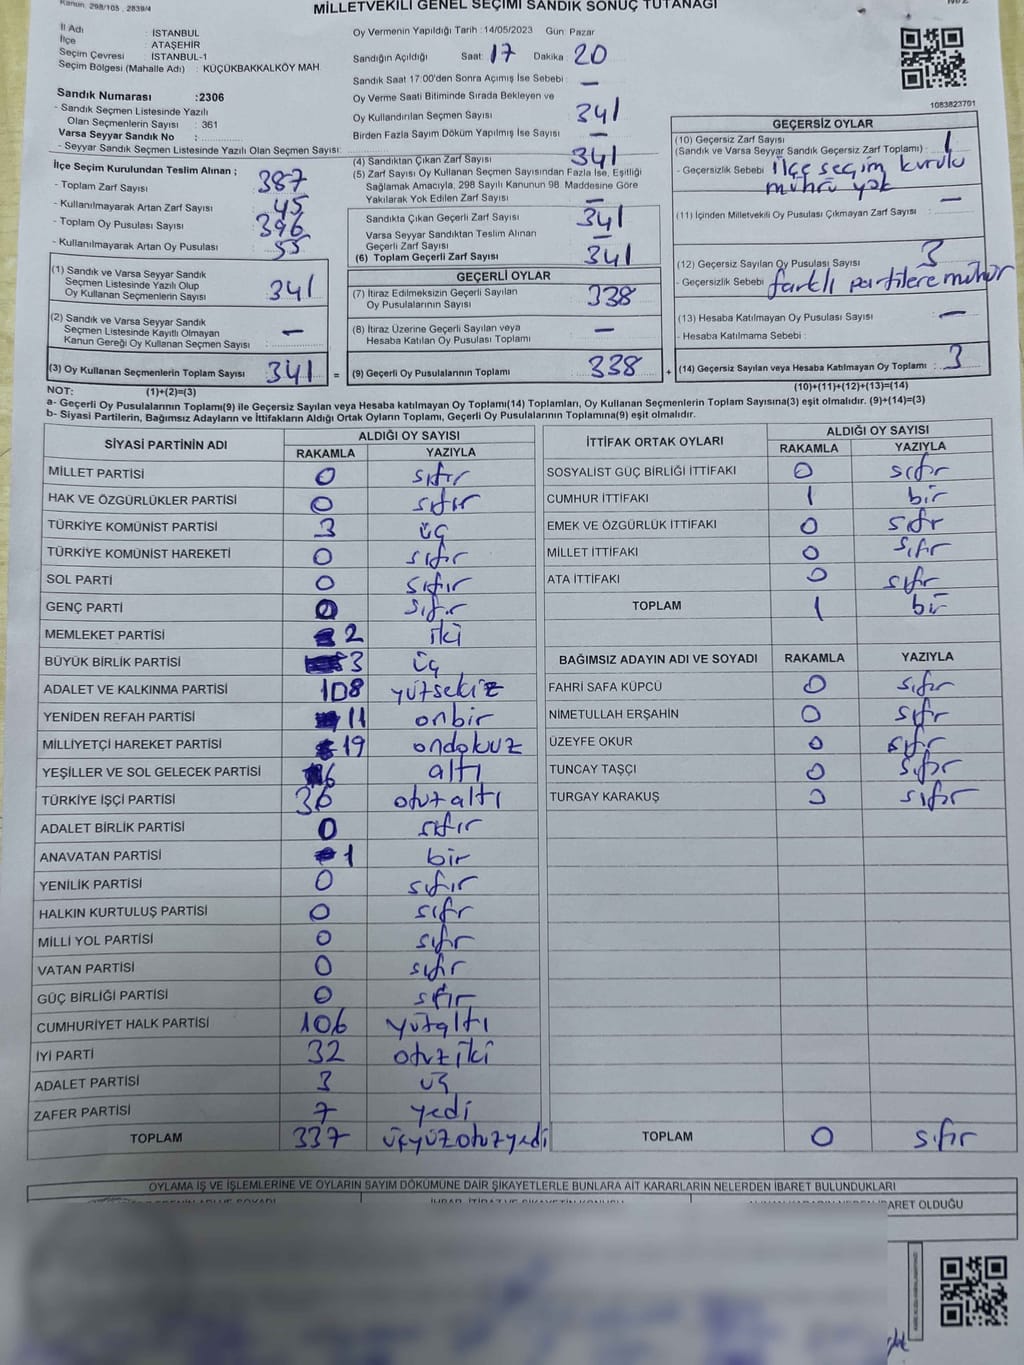 Kanun: 298/105 , 2839/4
MİLLETVEKİLİ GENEL SEÇİMİ SANDIK SONUÇ TUTANAĞI
İl Adı : İSTANBUL
İlçe : ATAŞEHİR
Seçim Çevresi : İSTANBUL-1
Seçim Bölgesi (Mahalle Adı) : KÜÇÜKBAKKALKÖY MAH
Sandık Numarası :2306
- Sandık Seçmen Listesinde Yazılı
Olan Seçmenlerin Sayısı : 361
Varsa Seyyar Sandık No :
- Seyyar Sandık Seçmen Listesinde Yazılı Olan Seçmen Sayısı:
Oy Vermenin Yapıldığı Tarih :14/05/2023 Gün: Pazar
Sandığın Açıldığı Saat: 17 Dakika 20
Sandık Saat 17:00'den Sonra Açımış İse Sebebi : —
Oy Verme Saati Bitiminde Sırada Bekleyen ve
Oy Kullandırılan Seçmen Sayısı : 341
Birden Fazla Sayım Döküm Yapılmış İse Sayısı : —
1083823701
İlçe Seçim Kurulundan Teslim Alınan ;
- Toplam Zarf Sayısı : 387
- Kullanılmayarak Artan Zarf Sayısı : 45
- Toplam Oy Pusulası Sayısı : 396
- Kullanılmayarak Artan Oy Pusulası : 55
(1) Sandık ve Varsa Seyyar Sandık
Seçmen Listesinde Yazılı Olup
Oy Kullanan Seçmenlerin Sayısı : 341
(2) Sandık ve Varsa Seyyar Sandık
Seçmen Listesinde Kayıtlı Olmayan
Kanun Gereği Oy Kullanan Seçmen Sayısı : —
(3) Oy Kullanan Seçmenlerin Toplam Sayısı 341 =
(4) Sandıktan Çıkan Zarf Sayısı : 341
(5) Zarf Sayısı Oy Kullanan Seçmen Sayısından Fazla İse, Eşitliği
Sağlamak Amacıyla, 298 Sayılı Kanunun 98. Maddesine Göre
Yakılarak Yok Edilen Zarf Sayısı : —
Sandıkta Çıkan Geçerli Zarf Sayısı : 341
Varsa Seyyar Sandıktan Teslim Alınan
Geçerli Zarf Sayısı : —
(6) Toplam Geçerli Zarf Sayısı : 341
GEÇERLİ OYLAR
(7) İtiraz Edilmeksizin Geçerli Sayılan
Oy Pusulalarının Sayısı : 338
(8) İtiraz Üzerine Geçerli Sayılan veya
Hesaba Katılan Oy Pusulası Toplamı : —
(9) Geçerli Oy Pusulalarının Toplamı : 338 +
GEÇERSİZ OYLAR
(10) Geçersiz Zarf Sayısı
(Sandık ve Varsa Seyyar Sandık Geçersiz Zarf Toplamı) : 1
- Geçersizlik Sebebi : ilçe seçim kurulu
mührü yok
(11) İçinden Milletvekili Oy Pusulası Çıkmayan Zarf Sayısı : —
(12) Geçersiz Sayılan Oy Pusulası Sayısı : 3
- Geçersizlik Sebebi : farklı partilere mühür
(13) Hesaba Katılmayan Oy Pusulası Sayısı : —
- Hesaba Katılmama Sebebi :
(14) Geçersiz Sayılan veya Hesaba Katılmayan Oy Toplamı : 3
NOT: (1)+(2)=(3) (10)+(11)+(12)+(13)=(14)
a- Geçerli Oy Pusulalarının Toplamı(9) ile Geçersiz Sayılan veya Hesaba Katılmayan Oy Toplamı(14) Toplamları, Oy Kullanan Seçmenlerin Toplam Sayısına(3) eşit olmalıdır. (9)+(14)=(3)
b- Siyasi Partilerin, Bağımsız Adayların ve İttifakların Aldığı Ortak Oyların Toplamı, Geçerli Oy Pusulalarının Toplamına(9) eşit olmalıdır.
SİYASİ PARTİNİN ADI ALDIĞI OY SAYISI
RAKAMLA YAZIYLA
MİLLET PARTİSİ 0 sıfır
HAK VE ÖZGÜRLÜKLER PARTİSİ 0 sıfır
TÜRKİYE KOMÜNİST PARTİSİ 3 üç
TÜRKİYE KOMÜNİST HAREKETİ 0 sıfır
SOL PARTİ 0 sıfır
GENÇ PARTİ 0 sıfır
MEMLEKET PARTİSİ 2 iki
BÜYÜK BİRLİK PARTİSİ 3 üç
ADALET VE KALKINMA PARTİSİ 108 yüzsekiz
YENİDEN REFAH PARTİSİ 11 onbir
MİLLİYETÇİ HAREKET PARTİSİ 19 ondokuz
YEŞİLLER VE SOL GELECEK PARTİSİ 6 altı
TÜRKİYE İŞÇİ PARTİSİ 36 otuzaltı
ADALET BİRLİK PARTİSİ 0 sıfır
ANAVATAN PARTİSİ 1 bir
YENİLİK PARTİSİ 0 sıfır
HALKIN KURTULUŞ PARTİSİ 0 sıfır
MİLLİ YOL PARTİSİ 0 sıfır
VATAN PARTİSİ 0 sıfır
GÜÇ BİRLİĞİ PARTİSİ 0 sıfır
CUMHURİYET HALK PARTİSİ 106 yüzaltı
İYİ PARTİ 32 otuziki
ADALET PARTİSİ 3 üç
ZAFER PARTİSİ 7 yedi
TOPLAM 337 üçyüzotuzyedi
İTTİFAK ORTAK OYLARI ALDIĞI OY SAYISI
RAKAMLA YAZIYLA
SOSYALİST GÜÇ BİRLİĞİ İTTİFAKI 0 sıfır
CUMHUR İTTİFAKI 1 bir
EMEK VE ÖZGÜRLÜK İTTİFAKI 0 sıfır
MİLLET İTTİFAKI 0 sıfır
ATA İTTİFAKI 0 sıfır
TOPLAM 1 bir
BAĞIMSIZ ADAYIN ADI VE SOYADI RAKAMLA YAZIYLA
FAHRİ SAFA KÜPCÜ 0 sıfır
NİMETULLAH ERŞAHİN 0 sıfır
ÜZEYFE OKUR 0 sıfır
TUNCAY TAŞÇI 0 sıfır
TURGAY KARAKUŞ 0 sıfır
TOPLAM 0 sıfır
OYLAMA İŞ VE İŞLEMLERİNE VE OYLARIN SAYIM DÖKÜMÜNE DAİR ŞİKAYETLERLE BUNLARA AİT KARARLARIN NELERDEN İBARET BULUNDUKLARI
İBARET OLDUĞU